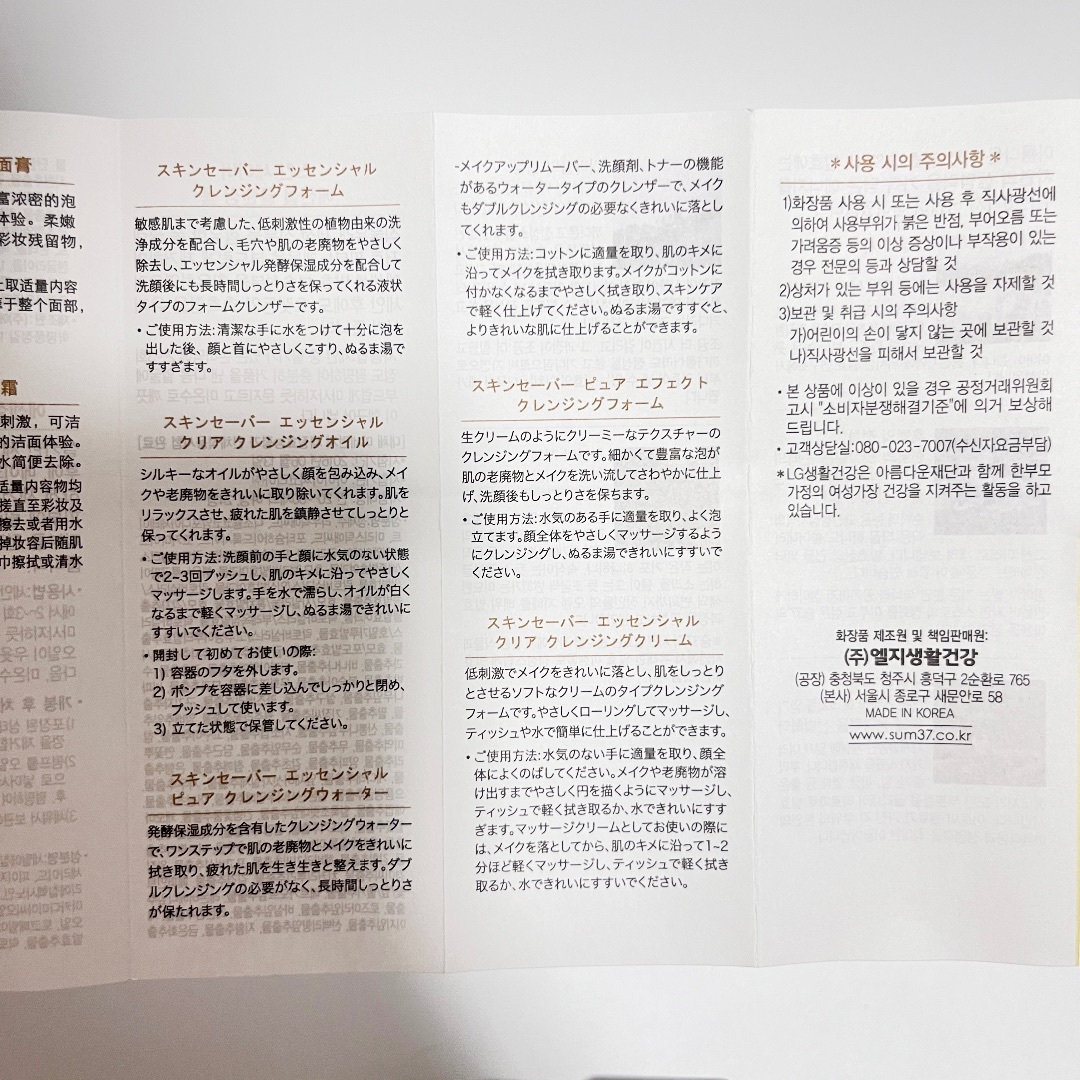 面膏
富浓密的泡
体验。柔嫩
彩妆残留物,
上取适量内容
于整个面部,
霜
刺激，可洁
的洁面体验。
水简便去除。
适量内容物均
搓直至彩妆及
擦去或者用水
掉妆容后随肌
巾擦拭或清水
スキンセーバー エッセンシャル
クレンジングフォーム
敏感肌まで考慮した、低刺激性の植物由来の洗
浄成分を配合し、毛穴や肌の老廃物をやさしく
除去し、エッセンシャル発酵保湿成分を配合して
洗顔後にも長時間しっとりさを保ってくれる液状
タイプのフォームクレンザーです。
・ご使用方法: 清潔な手に水をつけて十分に泡を
出した後、顔と首にやさしくこすり、ぬるま湯で
すすぎます。
スキンセーバー エッセンシャル
クリア クレンジングオイル
シルキーなオイルがやさしく顔を包み込み、メイ
クや老廃物をきれいに取り除いてくれます。肌を
リラックスさせ、疲れた肌を鎮静させてしっとりと
保ってくれます。
・ご使用方法: 洗顔前の手と顔に水気のない状態
で2-3回プッシュし、肌のキメに沿ってやさしく
マッサージします。手を水で濡らし、オイルが白く
なるまで軽くマッサージし、ぬるま湯できれいに
すすいでください。
・開封して初めてお使いの際:
1) 容器のフタを外します。
2) ポンプを容器に差し込んでしっかりと閉め、
プッシュして使います。
3) 立てた状態で保管してください。
スキンセーバー エッセンシャル
ピュア クレンジングウォーター
発酵保湿成分を含有したクレンジングウォーター
で、ワンステップで肌の老廃物とメイクをきれいに
拭き取り、疲れた肌を生き生きと整えます。ダブ
ルクレンジングの必要がなく、長時間しっとりさ
が保たれます。
-メイクアップリムーバー、洗顔剤、トナーの機能
があるウォータータイプのクレンザーで、メイク
もダブルクレンジングの必要なくきれいに落とし
てくれます。
・ご使用方法: コットンに適量を取り、肌のキメに
沿ってメイクを拭き取ります。メイクがコットンに
付かなくなるまでやさしく拭き取り、スキンケア
で軽く仕上げてください。ぬるま湯ですすぐと、
よりきれいな肌に仕上げることができます。
スキンセーバー ピュア エフェクト
クレンジングフォーム
生クリームのようにクリーミーなテクスチャーの
クレンジングフォームです。細かくて豊富な泡が
肌の老廃物とメイクを洗い流してさわやかに仕上
げ、洗顔後もしっとりさを保ちます。
・ご使用方法: 水気のある手に適量を取り、よく泡
立てます。顔全体をやさしくマッサージするよう
にクレンジングし、ぬるま湯できれいにすすいで
ください。
スキンセーバー エッセンシャル
クリア クレンジングクリーム
低刺激でメイクをきれいに落とし、肌をしっとり
とさせるソフトなクリームのタイプクレンジング
フォームです。やさしくローリングしてマッサージし、
ティッシュや水で簡単に仕上げることができます。
・ご使用方法: 水気のない手に適量を取り、顔全
体によくのばしてください。メイクや老廃物が溶
け出すまでやさしく円を描くようにマッサージし、
ティッシュで軽く拭き取るか、水できれいにすす
ぎます。マッサージクリームとしてお使いの際に
は、メイクを落としてから、肌のキメに沿って1-2
分ほど軽くマッサージし、ティッシュで軽く拭き
取るか、水できれいにすすいでください。
*사용 시의 주의사항*
1)화장품 사용 시 또는 사용 후 직사광선에
의하여 사용부위가 붉은 반점, 부어오름 또는
가려움증 등의 이상 증상이나 부작용이 있는
경우 전문의 등과 상담할 것
2)상처가 있는 부위 등에는 사용을 자제할 것
3)보관 및 취급 시의 주의사항
가)어린이의 손이 닿지 않는 곳에 보관할 것
나)직사광선을 피해서 보관할 것
• 본 상품에 이상이 있을 경우 공정거래위원회
고시 "소비자분쟁해결기준"에 의거 보상해
드립니다.
• 고객상담실: 080-023-7007(수신자요금부담)
*LG생활건강은 아름다운재단과 함께 한부모
가정의 여성가장 건강을 지켜주는 활동을 하고
있습니다.
화장품 제조원 및 책임판매원:
(주)엘지생활건강
(공장) 충청북도 청주시 흥덕구 2순환로 765
(본사) 서울시 종로구 새문안로 58
MADE IN KOREA
www.sum37.co.kr